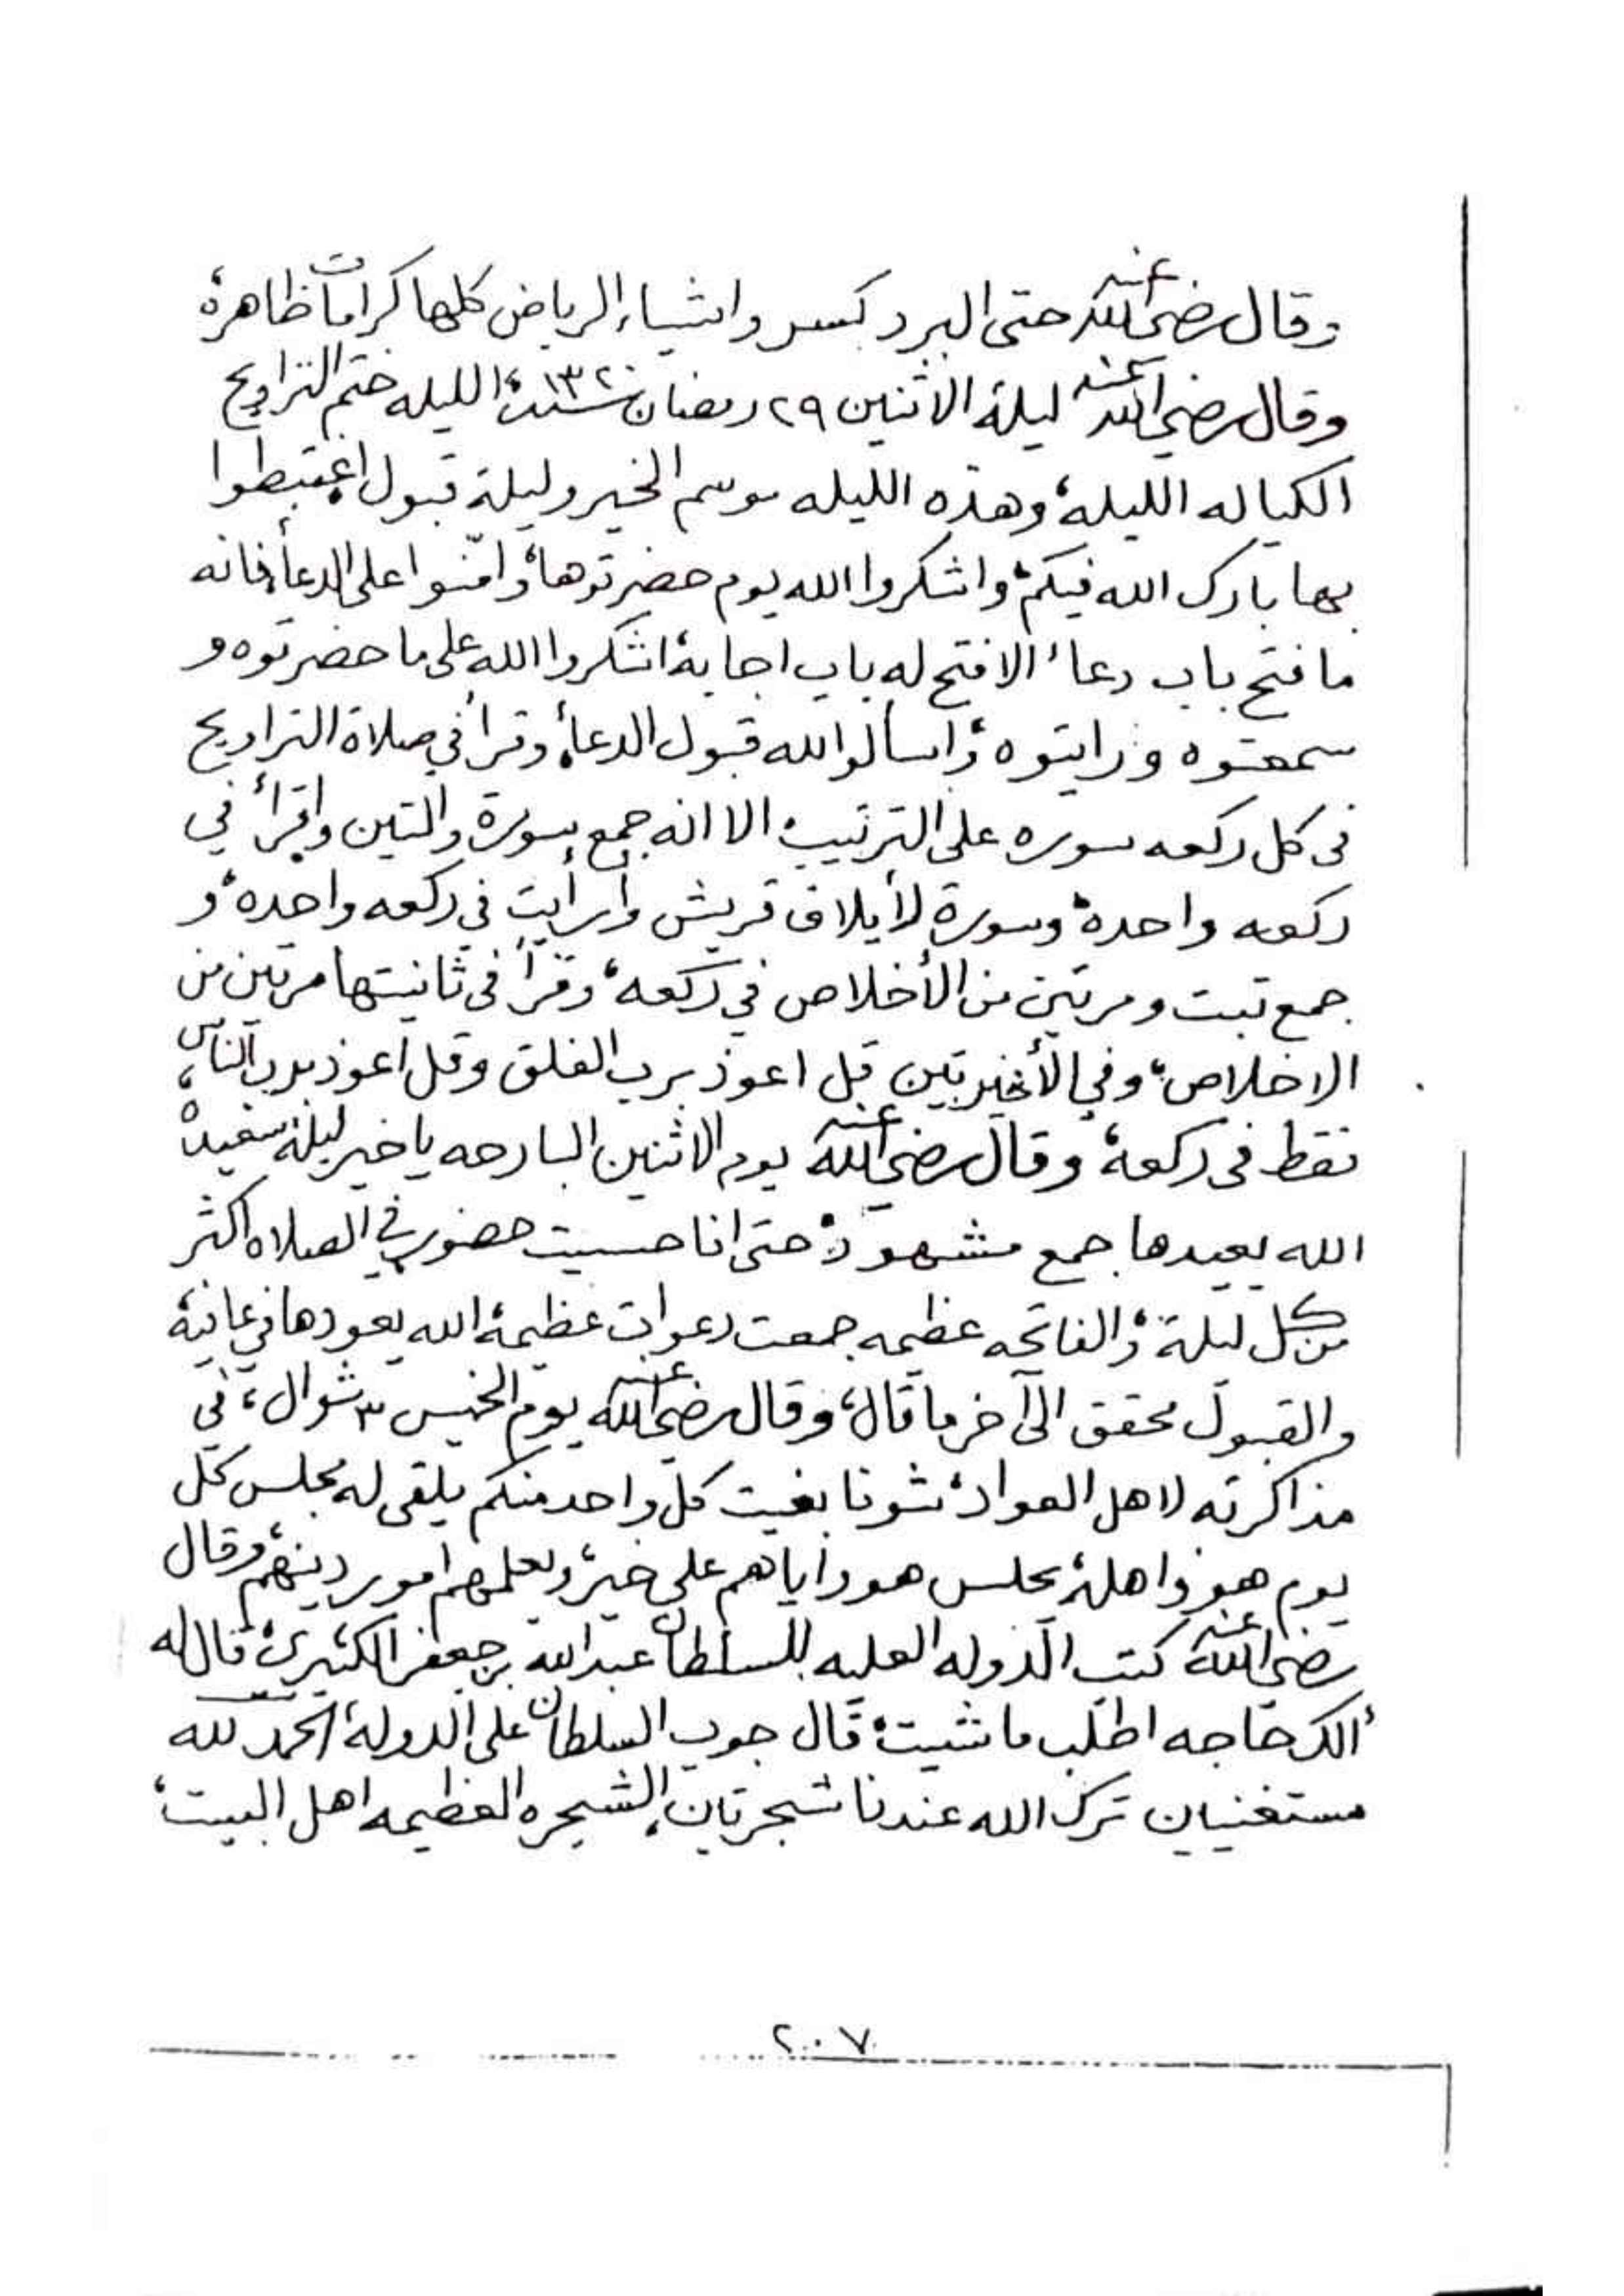 وقال رضي الله عنه حتى البرد كسر واشياء الرياض كلها كرامات ظاهرة،
وقال رضي الله عنه ليلة الاثنين ٢٩ رمضان سنة ١٣٢٠، الليله ختم التراويح
الكياله الليلة، وهذه الليله موسم الخير وليلة قبول اغتبطوا
بها بارك الله فيكم، واشكروا الله يوم حضرتوها، وامّنوا على الدعاء فانه
ما فتح باب دعاء الا فتح له باب اجابة، اشكروا الله على ما حضرتوه و
سمعتوه ورايتوه، واسألوا الله قبول الدعاء، وقرأ في صلاة التراويح
في كل ركعه سوره على الترتيب، الا انه جمع سورة والتين واقرأ في
ركعه واحدة، وسورة لأيلاف قريش وأرأيت في ركعه واحده، و
جمع تبت ومرتين من الأخلاص في ركعه، وقرأ في ثانيتها مرتين من
الاخلاص، وفي الأخيرتين قل اعوذ برب الفلق وقل اعوذ برب الناس،
فقط في ركعة، وقال رضي الله عنه يوم الاثنين البارحه يا خير ليلة سعيدة
الله يعيدها جمع مشهود، حتى انا حسيت حضوري في الصلاه اكثر
من كل ليلة، والفاتحه عظيمه جمعت دعوات عظيمة، الله يعودها في عافية،
والقبول محقق الى آخر ما قال، وقال رضي الله عنه يوم الخميس ٣ شوال، في
مذاكرته لاهل العواد، شونا بغيت كل واحد منكم يلقى له مجلس كل
يوم هو واهله، يجلس هو واياهم على خير، ويعلمهم امور دينهم، وقال
رضي الله عنه كتب الدوله العليه للسلطان عبدالله بن جعفر الكثيري، قال له
ألك حاجه اطلب ما شيت، قال جوب السلطان على الدولة، الحمد لله
مستغنيان ترك الله عندنا شجرتان، الشجره العظيمه اهل البيت،
٢٠٠٧